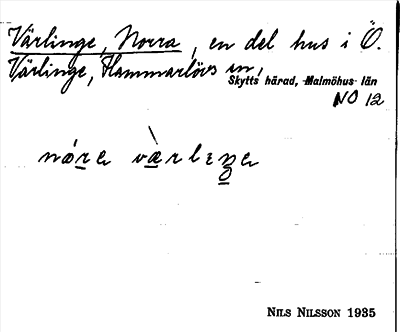 Värlinge, Norra, en del hus i Ö.
Värlinge, Hammarlövs sn,
Skytts härad, Malmöhus län
NO 12
nórɛ vɛ̀rlɪŋɛ
NILS NILSSON 1935